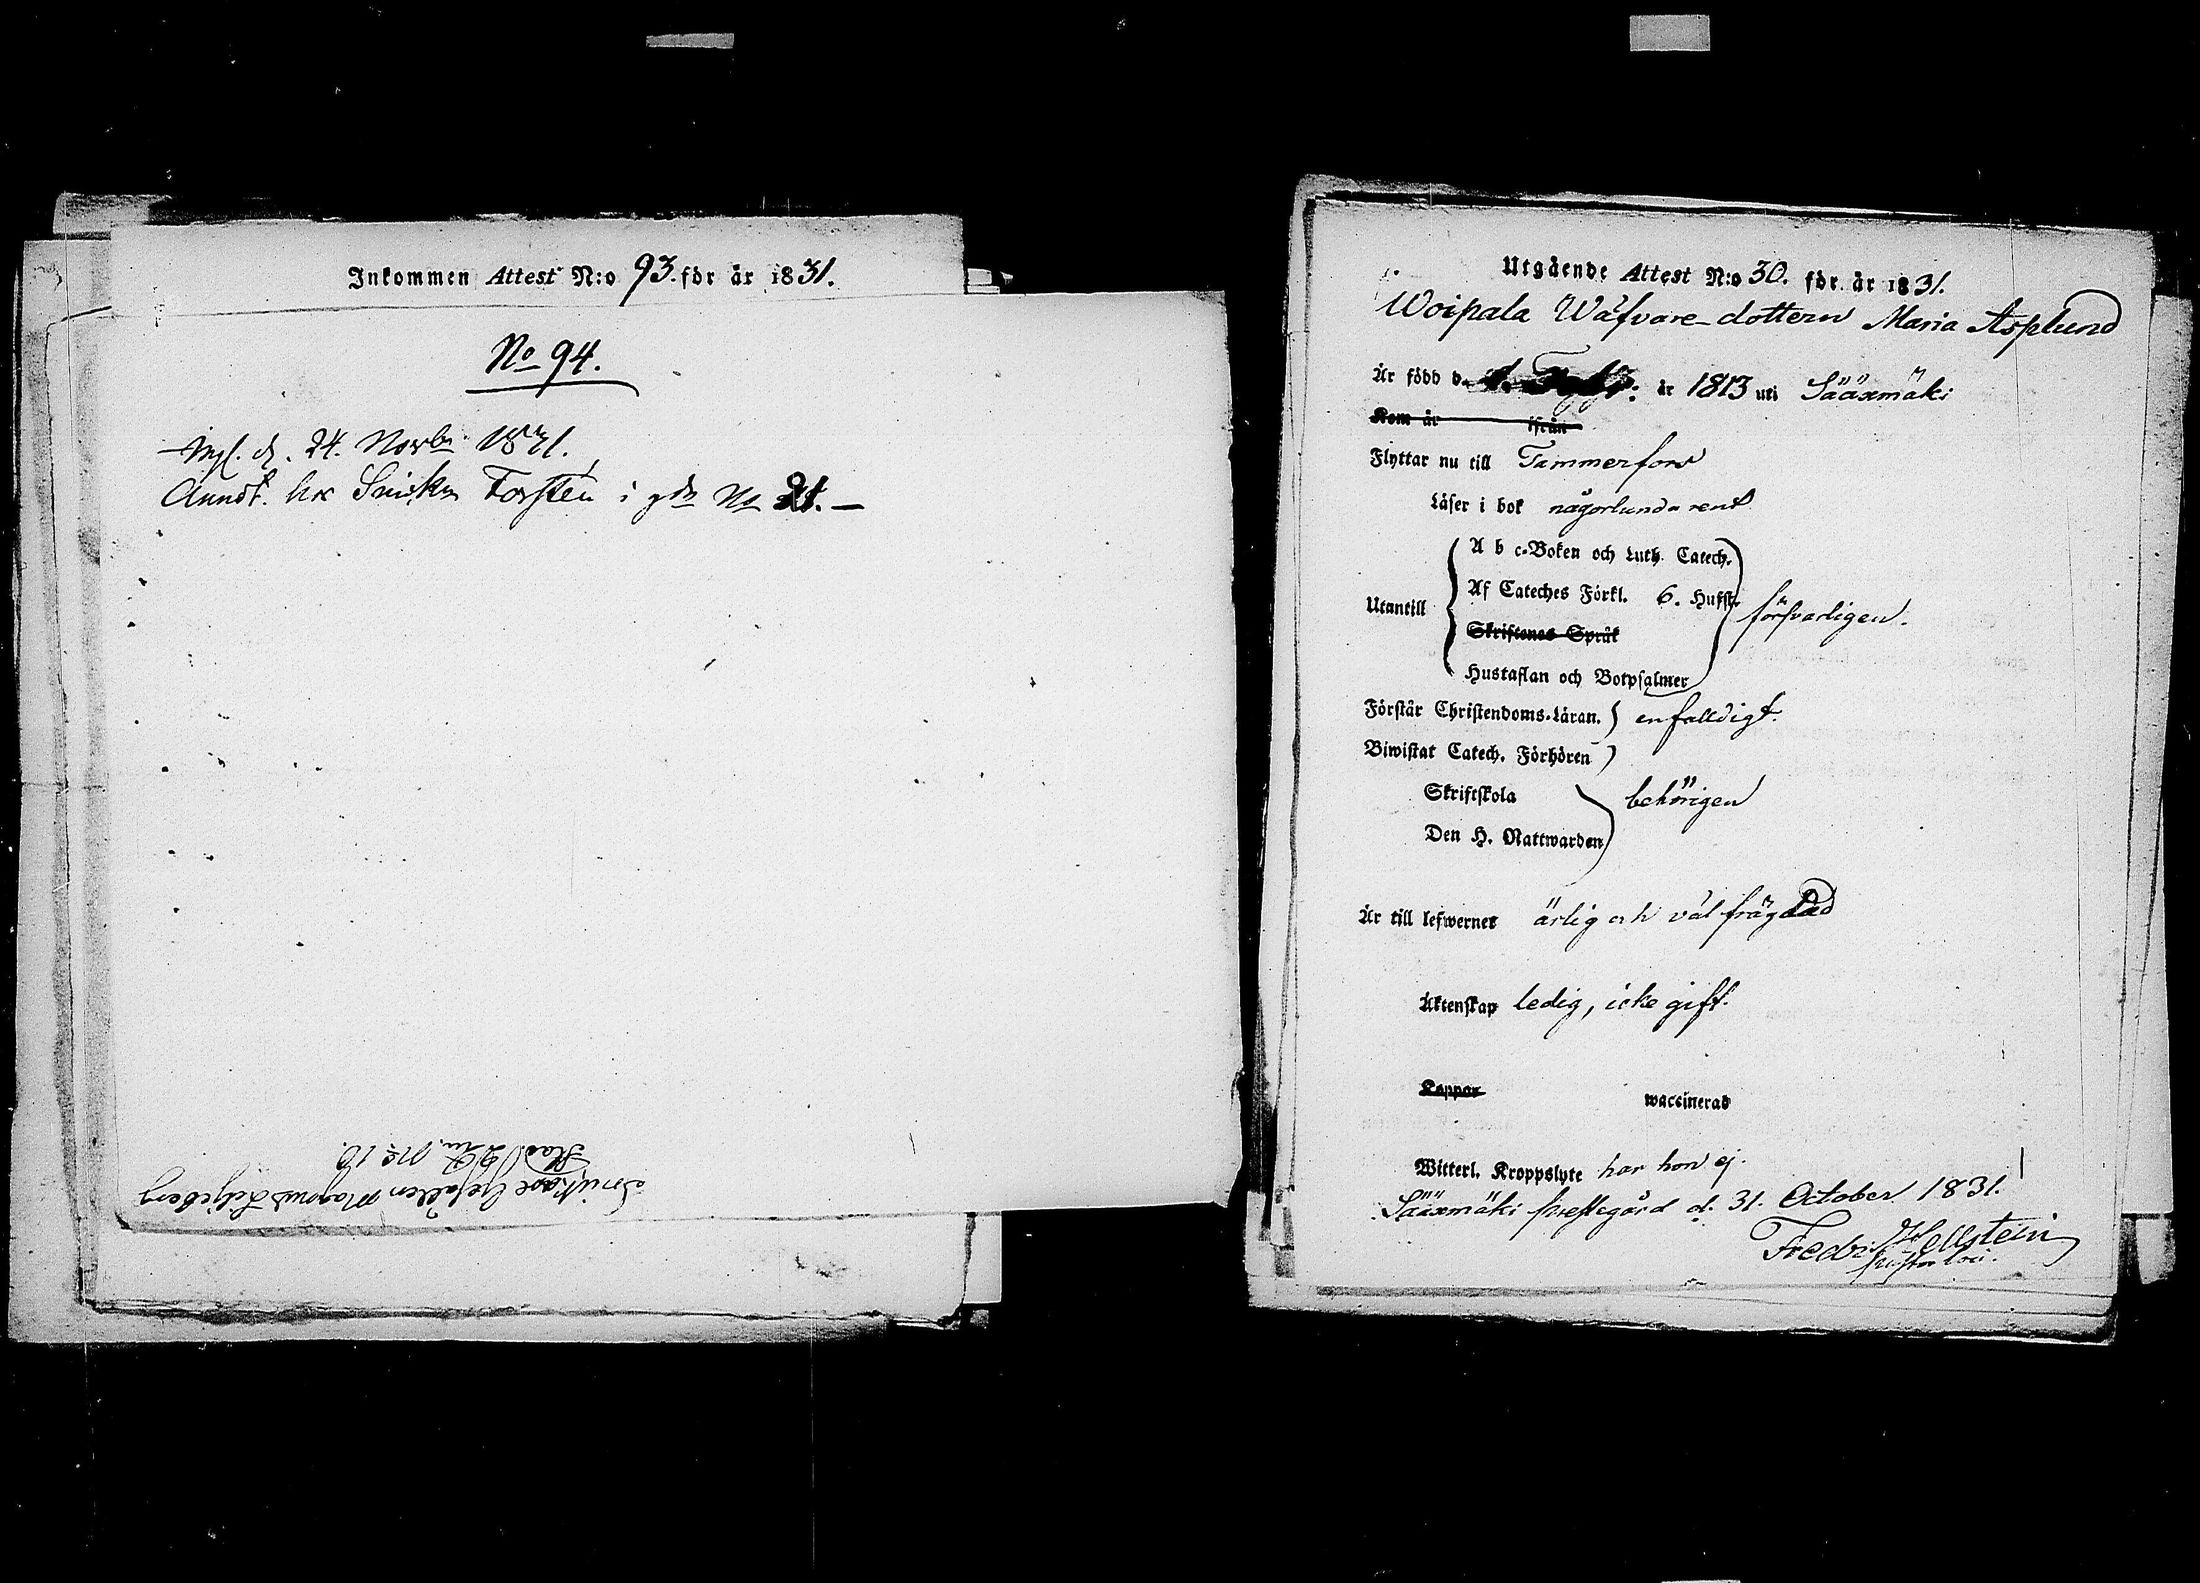 Inkommen Attest N:o 93. för år 1831.
No 94.
d. 24. Novbr 1831.
hos Snick. Forstén i gdn No 21. –
Snickare Gesällen Magnus Liljeberg
No 10.
Utgående Attest N:o 30. för år 1831.
Woipala Wäfvare-dottern Maria Asplund
År född d. år 1813 uti Sääxmäki
Kom år ifrån
Flyttar nu till Tammerfors
Läser i bok någorlunda rent
A b c-Boken och Luth. Catech.
Af Cateches Förkl. 6. Hufst.
Utantill försvarligen.
Skriftenes Språk
Hustaflan och Botpsalmer
Förstår Christendoms-Läran. enfalldigt.
Biwistat Catech. Förhören
Skriftskola behörigen
Den H. Nattwarden
Är till lefwernet ärlig och väl frägdad
Äktenskap ledig, icke gift.
Koppor waccinerad
Witterl. Kroppslyte har hon ej.
Sääxmäki prestegård d. 31. October 1831.
Fredr. Hellstein